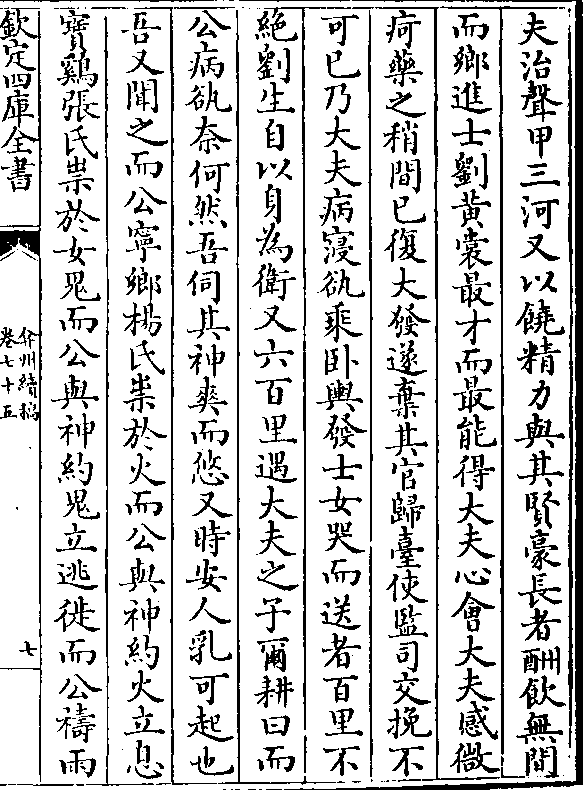 夫治聲甲三河又以饒精力與其賢豪長者酬飲無間
而鄉進士劉黃裳最才而最能得大夫心會大夫感微
疴藥之稍間已復大發遂棄其官歸臺使監司交挽不
可已乃大夫病寖欱乘臥輿發士女哭而送者百里不
絶劉生自以身為衛又六百里遇大夫之子爾耕曰而
公病欱奈何然吾伺其神爽而悠又時安人乳可起也
吾又聞之而公寧鄉楊氏祟於火而公與神約火立息
寳鷄張氏祟於女鬼而公與神約鬼立逃徙而公禱雨
欽定四庫全書
弇州續稿
卷七十五
七